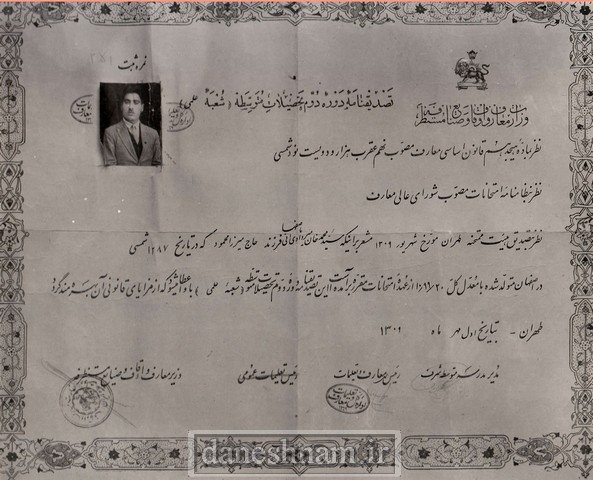 نمره ثبت
وزارت معارف و اوقاف و صنایع مستظرفه
تصدیقنامه دوره دوم تحصیلات متوسطه (شعبه علمی)
نظر بماده هیجدهم قانون اساسی معارف مصوب نهم عقرب هزار و دویست و نود شمسی
نظر بنظامنامه امتحانات مصوب شورای عالی معارف
نظر بتصدیق هیئت ممتحنه طهران مورخ شهریور ۱۳۰۹ مشعر براینکه فرزند حاج میرزا محمود که در تاریخ ۱۲۸۷ شمسی
در اصفهان متولد شده با معدل کل از عهده امتحانات مقرر برآمده است این تصدیقنامه دوره دوم تحصیلات متوسطه (شعبه علمی) باو اعطا میشود که از مزایای قانونی آن بهره مند گردد
طهران - بتاریخ اول مهر ماه ۱۳۰۹
مدیر مدرسه متوسطه شرف
رئیس معارف ایالات
رئیس تعلیمات عمومی
وزیر معارف و اوقاف و صنایع مستظرفه
daneshnam.ir